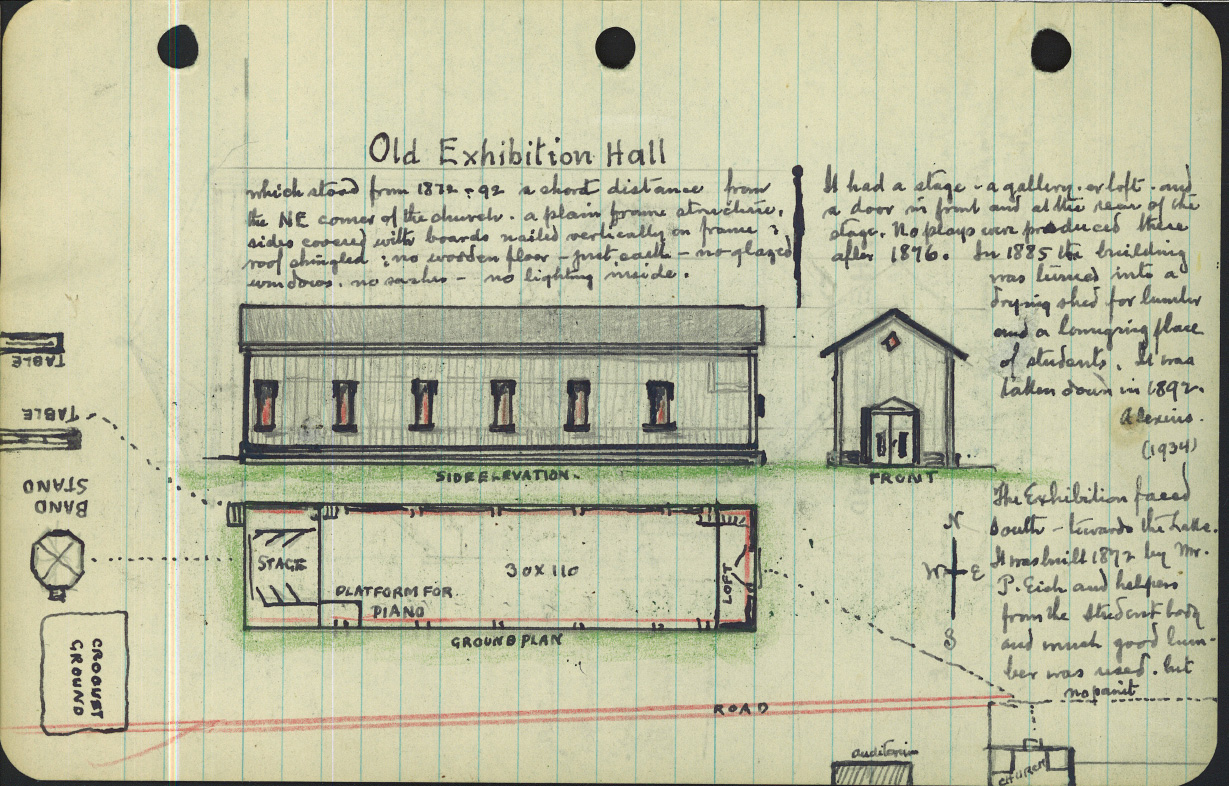 Old Exhibition Hall
which stood from 1872 - 92 a short distance from
the NE corner of the church. a plain frame structure,
sides covered with boards nailed vertically on frame ;
roof shingled ; no wooden floor - just earth - no glazed
windows. no sashes - no lighting inside.
It had a stage - a gallery. or loft. and
a door in front and at the rear of the
stage. No plays were produced there
after 1876. In 1885 the building
was turned into a
drying shed for lumber
and a lounging place
of students. It was
taken down in 1892.
Alexius.
(1934)
TABLE
TABLE
BAND
STAND
CROQUET
GROUND
SIDE ELEVATION.
FRONT
STAGE
PLATFORM FOR
PIANO
30 X 110
LOFT
GROUND PLAN
N
W E
S
The Exhibition faced
South - towards the Lake.
It was built 1872 by Mr.
P. Eich and helpers
from the student body
and much good lum-
ber was used. but
no paint
ROAD
auditorium
CHURCH